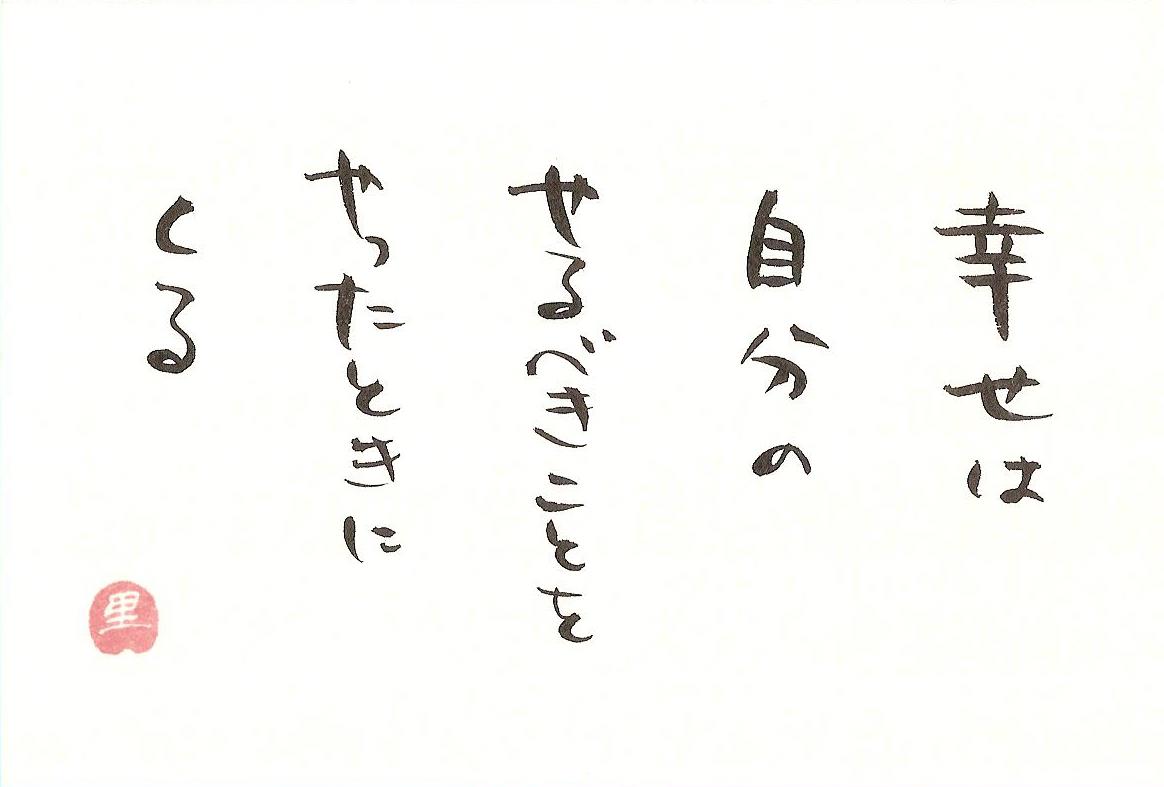 幸せは
自分の
やるべきことを
やったときに
くる
里